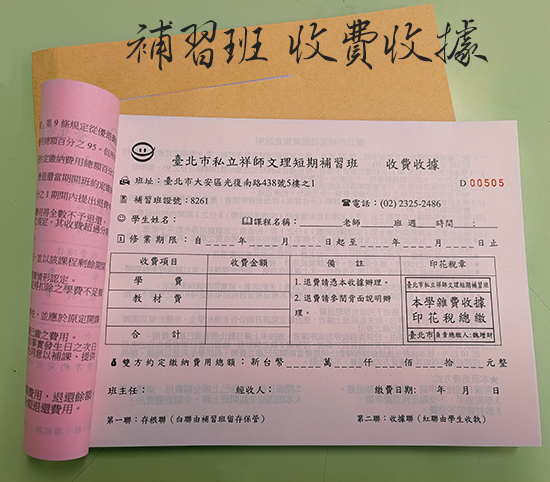 補習班 收費收據
臺北市私立祥師文理短期補習班 收費收據
班址：臺北市大安區光復南路438號5樓之1 D 00505
補習班證號：8261 電話：(02) 2325-2486
學生姓名： 課程名稱： 老師 班 週 時間： ：
修業期限：自 年 月 日起至 年 月 日止
收費項目 收費金額 備註 印花稅章
學費
教材費
合計
1. 退費請憑本收據辦理。
2. 退費請參閱背面說明辦理。
臺北市私立祥師文理短期補習班
本學雜費收據
印花稅總繳
臺北市 負責總繳人：魏增財
雙方約定繳納費用總額：新台幣 萬 仟 佰 拾 元整
班主任： 經收人： 繳費日期： 年 月 日
第一聯：存根聯（白聯由補習班留存保管） 第二聯：收據聯（紅聯由學生收執）
第9條規定從優退
總額百分之95。但
約定繳納費用總額百分
還當期開班約定繳
之1期間內提出退費
得全數不予退還，
，其收費超過分期
，並以該課程剩餘開
情形認定。
扣除之學費不足
，並應於原定開課
已繳之費用。
事實發生日之次日
同意以補課、提供
費用，退還餘額
額退還費用。